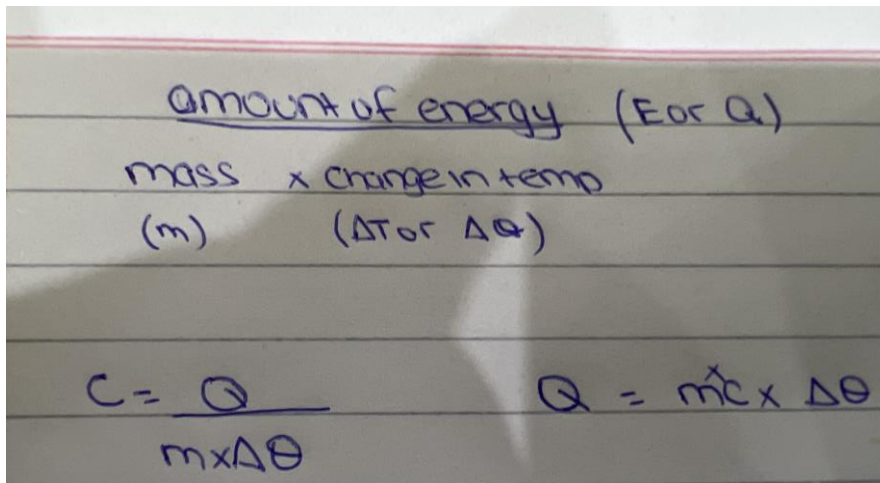 amount of energy (E or Q)
mass x change in temp
(m) (ΔT or Δθ)
C = Q Q = m x c x Δθ
m x Δθ